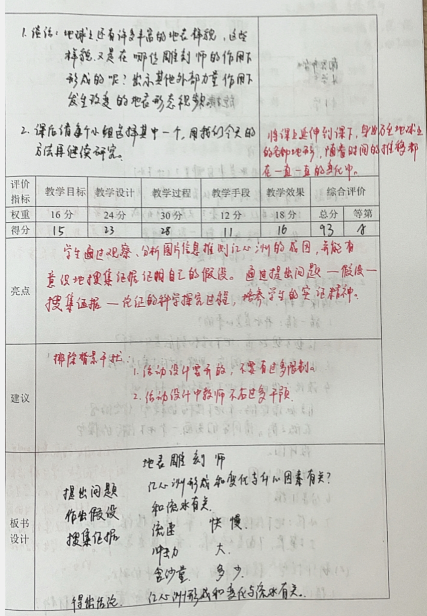 1. 谈话:地球上还有许多丰富的地表样貌,这些
样貌又是在哪位雕刻师的作用下
形成的呢?出示其他外部力量作用下
发生改变的地表形态视频。
2. 课后请每个小组选择其中一个,用我们今天的
方法再继续研究。
将课上延伸到课下,
的各种地形,随着时间的推移都
在一直一直的变化中。
评价指标 教学目标 教学设计 教学过程 教学手段 教学效果 综合评价
权重 16分 24分 30分 12分 18分 总分 等第
得分 15 23 28 11 16 93
亮点
学生通过观察、分析图片信息推测江心洲的成因,并能有
意识地搜集证据证明自己的假设。通过提出问题—假设—
搜集证据—论证的科学探究过程,培养学生的实证精神。
建议
排除背景干扰
1. 活动设计要开放,不要有过多限制。
2. 活动设计中教师不占过多干预
板书设计
地表雕刻师
提出问题 江心洲形成和变化与什么因素有关?
作出假设 和流水有关
搜集证据 流速 快 慢
冲击力 大
含沙量 多 少
得出结论 江心洲形成和变化与流水有关。